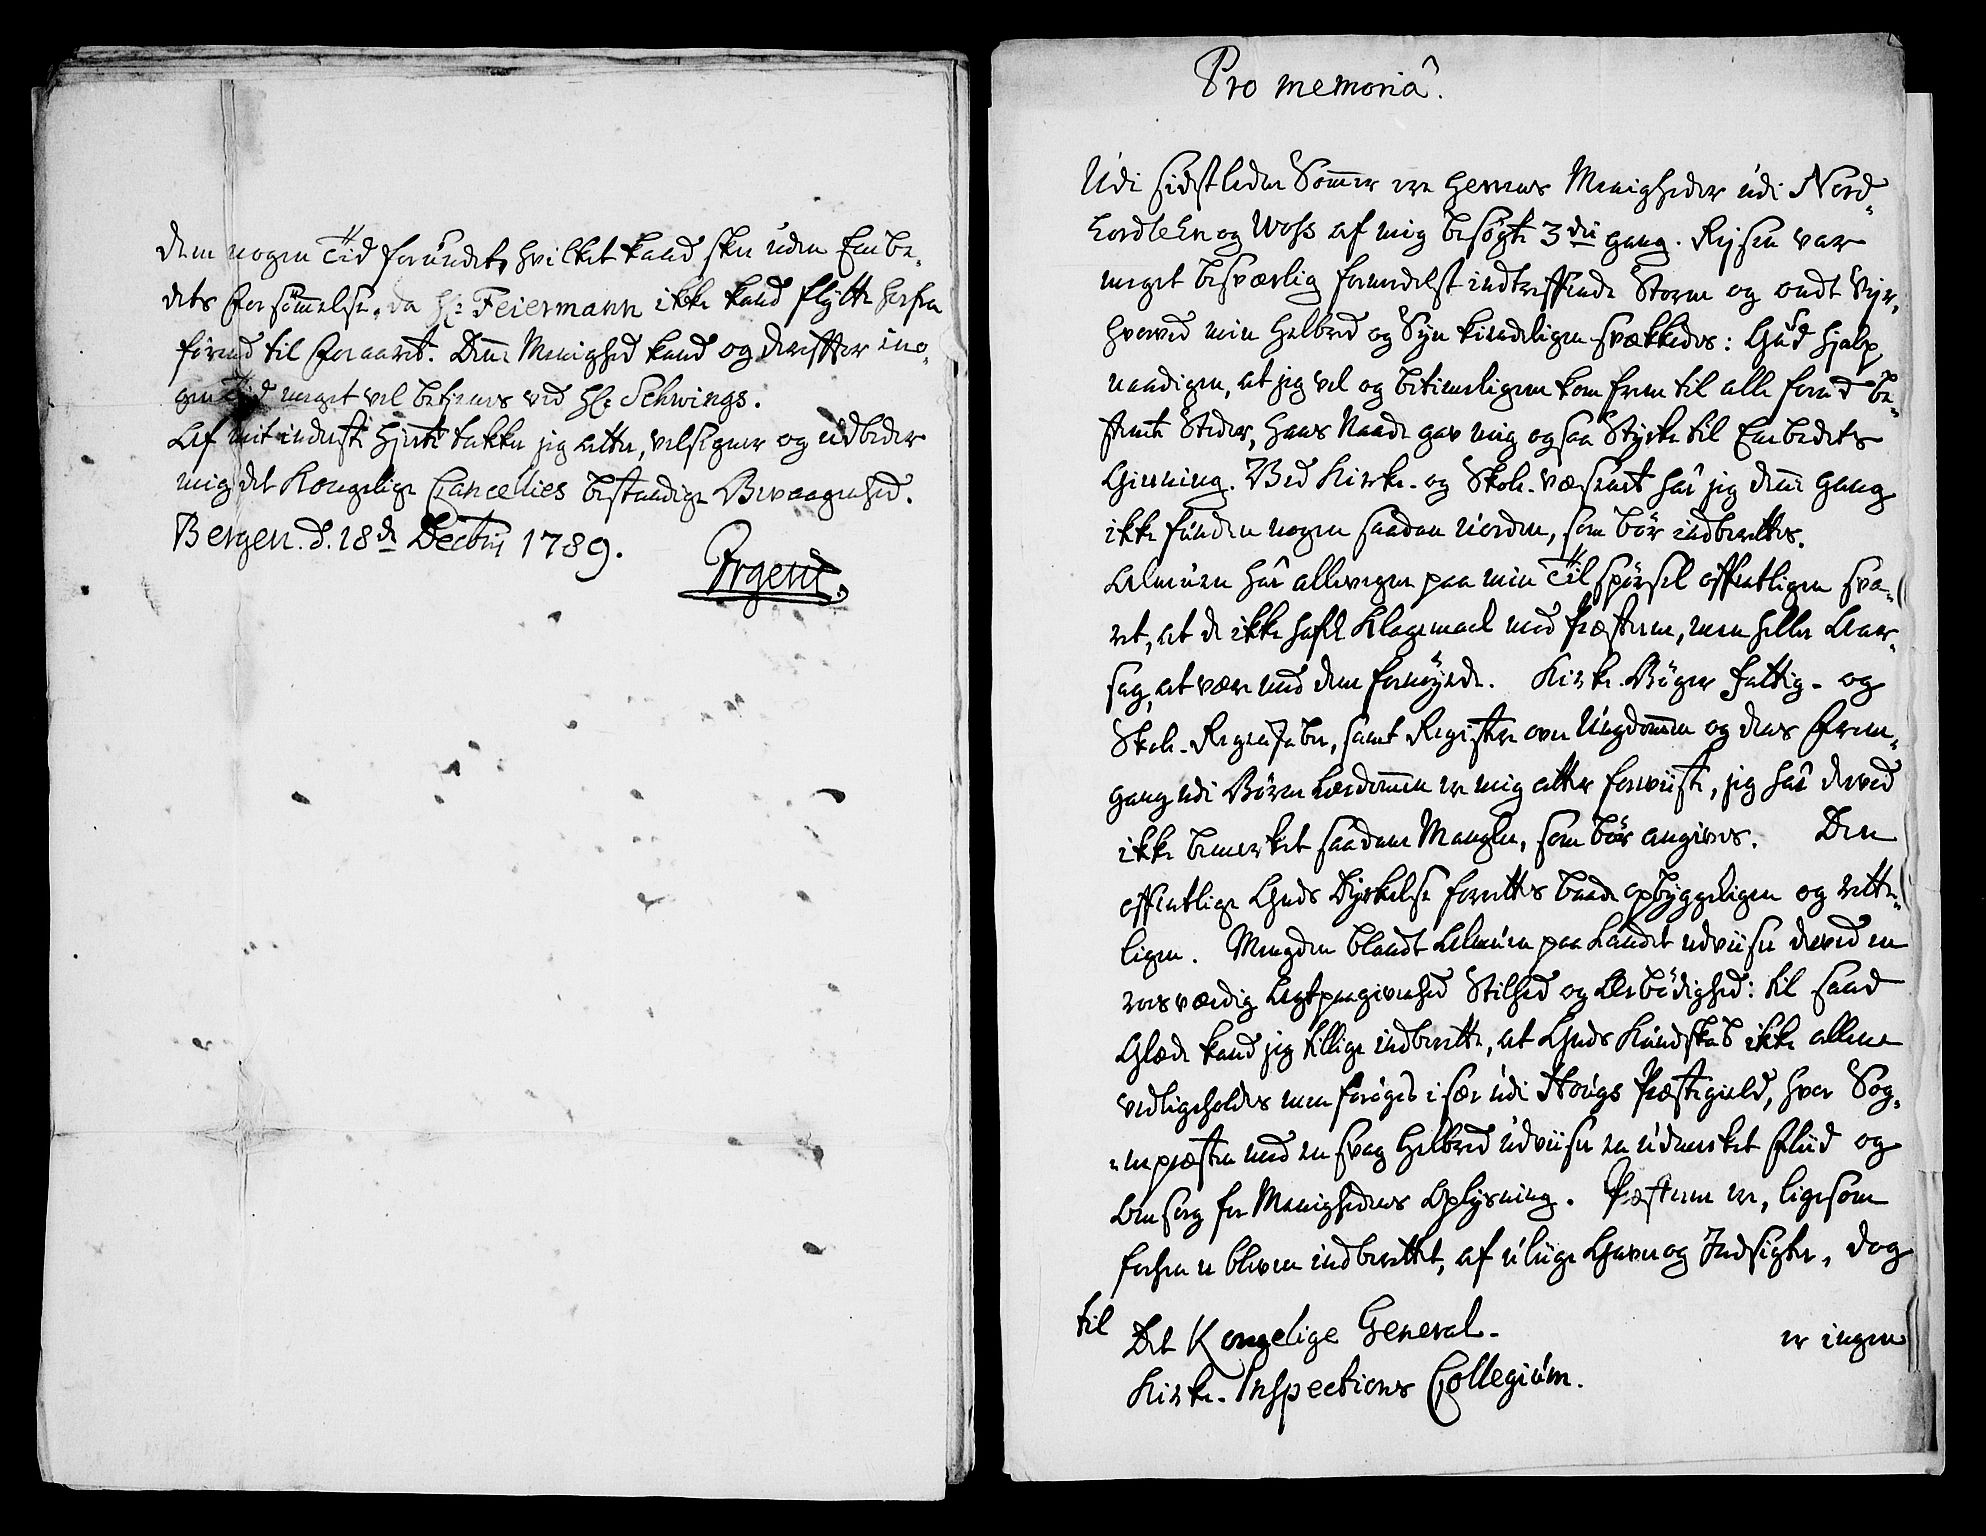 dem nogen Tid forundet, hvilket kand skee uden Embe-
dets Forsömmelse, da Hr: Feiermann ikke kand flytte herfra
förend til Foraaret. Denne Menighed kand og derefter i no-
gen Tid meget vel betienes ved Hr: Schwings.
Af mit inderste Hierte takker jeg atter, velsigner og udbeder
mig det Kongelige Cancellies bestandige Bevaagenhed.
Bergen. d. 18de Decbris 1789.
Irgens.
Pro memoriâ.
Udi sidstleden Sommer ere Herrens Menigheder udi Nord-
hordlehn og Woss af mig besögte 3die gang. Reysen var
meget besværlig formedelst indtreffende Storm og ondt Veyr,
hvorved min Helbred og Syn kiendeligen svækkedes: Gud hialp
naadigen, at jeg vel og betimeligen kom frem til alle forud be-
stemte Steder, hans Naade gav mig ogsaa Styrke til Embedets
Gierning. Ved Kirke- og Skole-væsenet har jeg denne gang
ikke funden nogen saadan Uorden, som bör indberettes.
Almuen har allevegne paa min Tilspörsel offentligen sva-
ret, at de ikke hafde Klagemaal mod Præsterne, men heller Aar-
sag, at være med dem fornöyede. Kirke-Böger Fattig- og
Skole-Regenskaber, samt Registre over Ungdommen og dens Frem-
gang udi Börne Lærdommen ere mig atter foreviiste, jeg har derved
ikke bemerket saadanne Mangler, som bör angives. Den
offentlige Guds Dyrkelse forrettes baade opbyggeligen og rette-
ligen. Mengden blandt Almuen paa Landet udviiser derved en
roesværdig Agtpaagivenhed Stilhed og Ærbödighed: til sand
Glæde kand jeg tillige indberette, at Guds Kundskab ikke allene
vedligeholdes men foröges i sær udi Hougs Præstegield, hvor Sog-
nepræsten med en svag Helbred udviiser en udmerket Fliid og
Omsorg for Menighedens Oplysning. Præsterne ere, ligesom
forhen er bleven indberettet, af ulige Gaver og Indsigter, dog
til
Det Kongelige General-
er ingen
Kirke-Inspections Collegium.